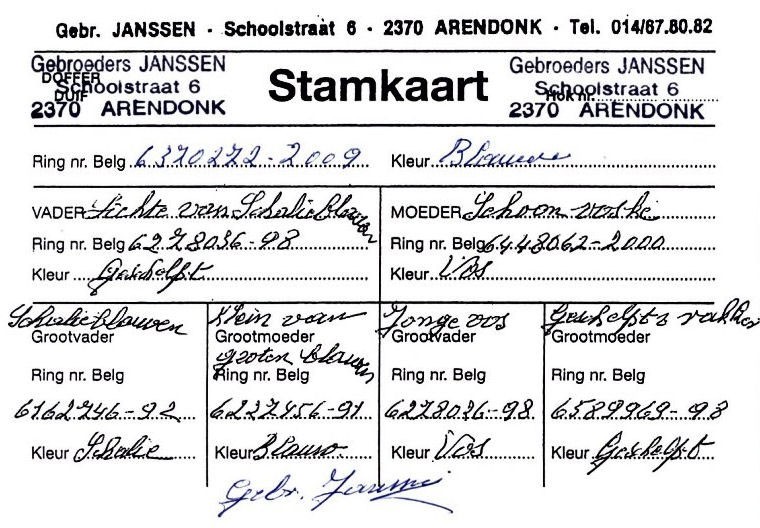 Gebr. JANSSEN - Schoolstraat 6 - 2370 ARENDONK - Tel. 014/67.80.82
Gebroeders JANSSEN
DOFFER
Schoolstraat 6
DUIF
2370 ARENDONK
Stamkaart
Gebroeders JANSSEN
Schoolstraat 6
Hok nr.
2370 ARENDONK
Ring nr. Belg 6370272-2009 Kleur Blauwe
VADER Lichte van Schalieblauwen
Ring nr. Belg 6278036-98
Kleur Geschelpt
MOEDER Schoon voske
Ring nr. Belg 6448062-2000
Kleur Vos
Schalieblauwen
Grootvader
Ring nr. Belg
6162746-92
Kleur Schalie
Klein van
Grootmoeder
groten blauwen
Ring nr. Belg
6227456-91
Kleur Blauw
Jonge vos
Grootvader
Ring nr. Belg
6278036-98
Kleur Vos
Geschelpts
Grootmoeder
Ring nr. Belg
6589969-98
Kleur Geschelpt
Gebr. Janssen